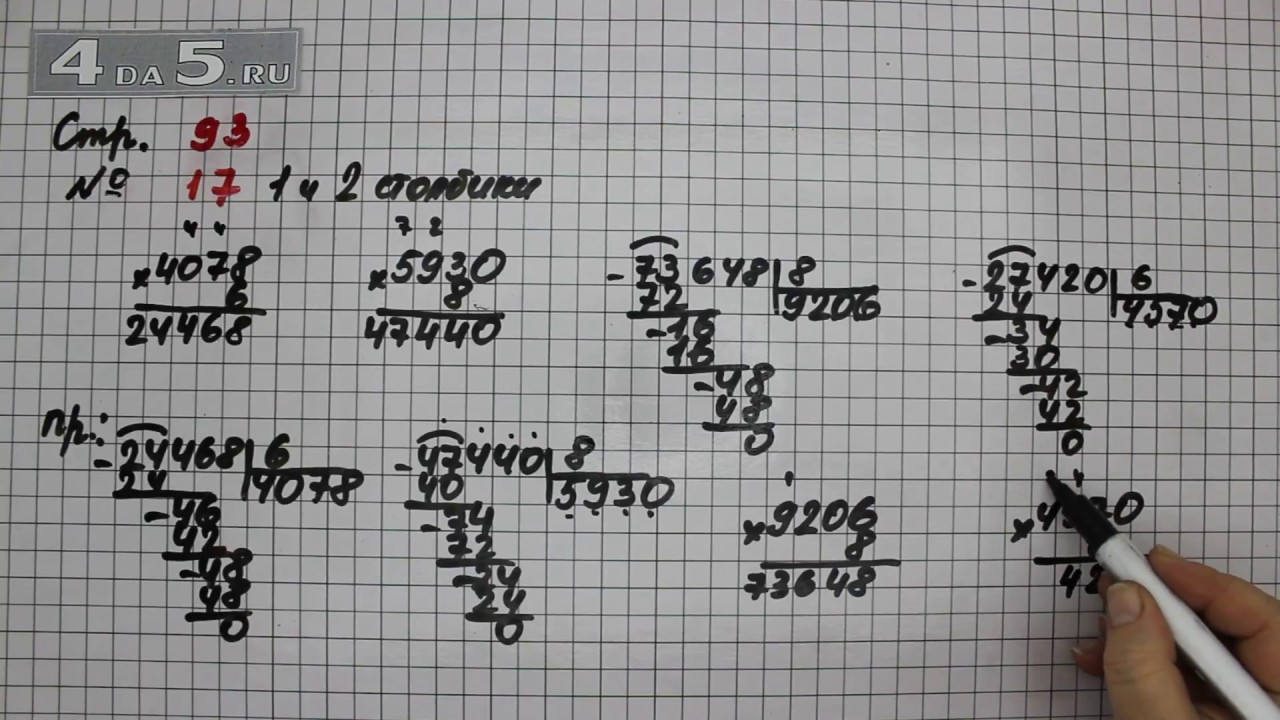 4DA5.RU
Стр. 93
№ 17 1 и 2 столбики
4 4
×4078
6
24468
7 2
×5930
8
47440
-73648|8
72 9206
-16
16
-48
48
0
-27420|6
24 4570
-34
30
-42
42
0
пр.:
-24468|6
24 4078
-46
42
-48
48
0
-47440|8
40 5930
-74
72
-24
24
0
×9206
8
73648